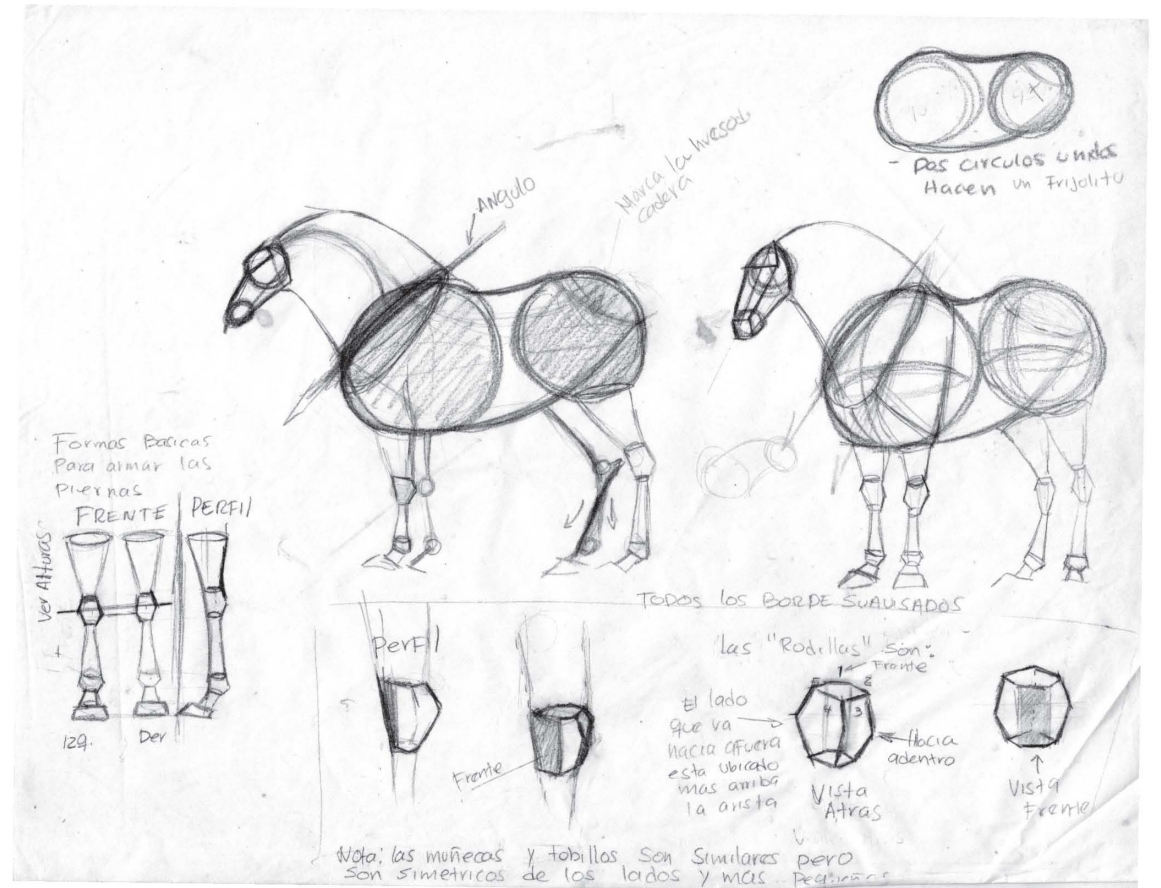 - Dos circulos unidos
Hacen un Frijolito
ANGULO
Marca la huesos
cadera
Formas Basicas
Para armar las
Piernas
FRENTE
PERFIl
Ver Alturas
Izq.
Der
TODOS los BORDE SUAVISADOS
Perfil
Frente
las "Rodillas" son:
Frente
1
2
4
3
El lado
que va
hacia afuera
esta ubicado
mas arriba
la arista
Hacia
adentro
Vista
Atras
Vista
Frente
Nota; las muñecas y tobillos son similares pero
son simetricos de los lados y mas